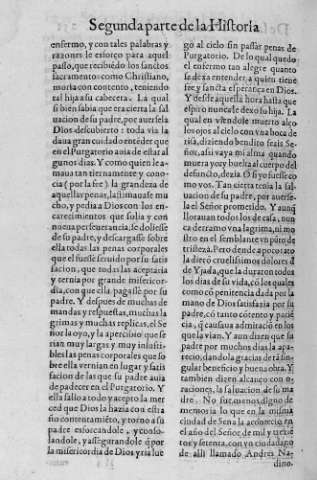 Segunda parte de la Historia
enfermo, y con tales palabras y
razones le esforço para aquel
passo, que recibiẽdo los sanctos
sacramentos como Christiano,
moria con contento, teniendo
tal hija a su cabecera. La qual
si bien sabia que era cierta la sal
uacion de su padre, por auersela
Dios descubierto: toda via la
daua gran cuidado entẽder que
en el Purgatorio auia de estar al
gunos dias. Y como quien le a-
maua tan tiernamente y cono-
cia (por la fee) la grandeza de
aquellas penas, lastimauase mu
cho, y pedia a Dios con los en-
carecimientos que solia y con
nueua perseuerancia, se doliesse
de su padre, y descargasse sobre
ella todas las penas corporales
que el fuesse seruido por su satis
facion, que todas las aceptaria
y ternia por grande misericor-
dia, con que ella pagasse por su
padre. Y despues de muchas de
mandas y respuestas, muchas la
grimas y muchas replicas, el Se
ñor lo oyo, y la apercibio que se
rian muy largas y muy insufri-
bles las penas corporales que so
bre ella vernian en lugar y satis
facion de las que su padre auia
de padecer en el Purgatorio. Y
ella salio a todo y acepto la mer
ced que Dios la hazia con estra
ño contentamiẽto, y torno a su
padre esforcandole, y conso-
landole, y assegurandole q̃ por
la misericordia de Dios yria lue
go al cielo sin passar penas de
Purgatorio. De lo qual quedo
el enfermo tan alegre quanto
se dexa entender, a quien tiene
fee y sancta esperança en Dios.
Y desde aquella hora hasta que
espiro nunca le dexo su hija. La
qual en viendole muerto alço
los ojos al cielo con vna boca de
risa, diziendo bendito seais Se-
ñor, assi vaya mi alma quando
muera yo: y buelta al cuerpo del
defuncto, dezia. O si yo fuesse co
mo vos. Tan cierta tenia la sal-
uacion de su padre, por auerse-
la el Señor prometido. Y aunq̃
llorauan todos los de casa, nun
ca derramo vna lagrima, ni mo
stro en el semblante vn puro de
tristeza. Pero dende a poco rato
la dierõ cruelissimos dolores d̃
de Yjada, que la duraron todos
los dias de su vida, cõ los quales
como cõ penitencia dada por la
mano de Dios satisfazia por su
padre, cõ tanto cõtento y pacie
cia, q̃ causaua admiraciõ en los
que la vian. Y aun dizen que su
padre por muchos dias la apa-
recio, dandola gracias de tã sin-
gular beneficio y buena obra. Y
tambien dizen alcanço con o-
raciones, la saluacion de su ma
dre. No fue menos digno de
memoria lo que en la misma
ciudad de Sena la acontecio en
el año del Señor de mil y trezien
tos y setenta, con vn ciudadano
de alli llamado Andres Na-
dino.